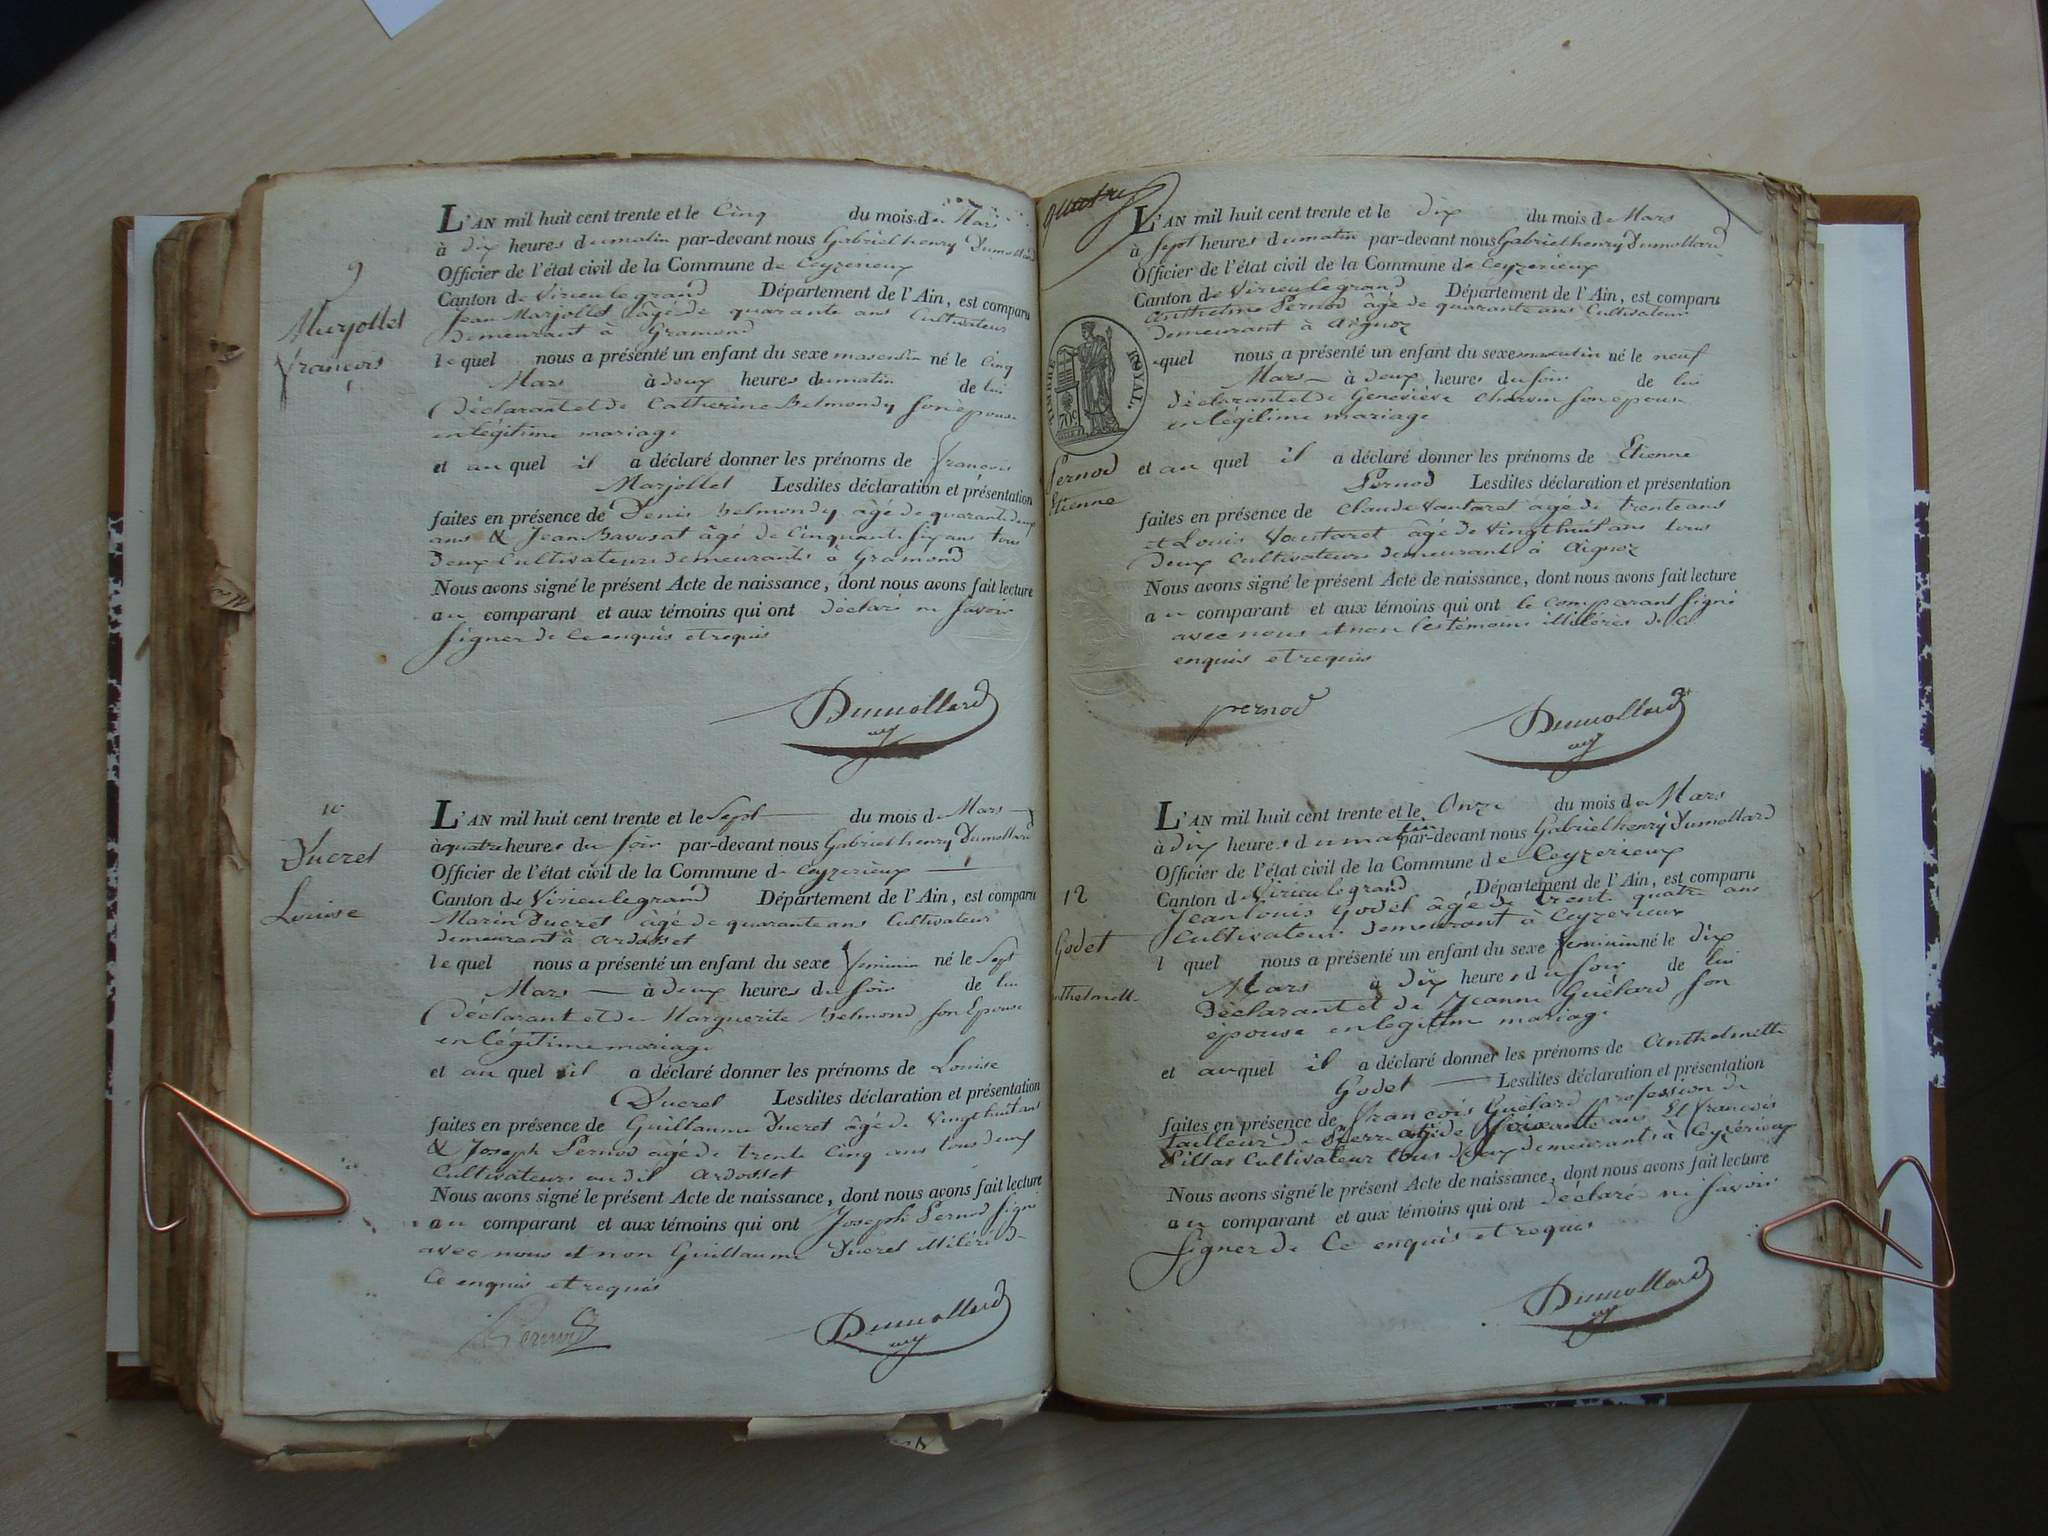 9
Marjollet
François
L'AN mil huit cent trente et le Cinq du mois de Mars
à dix heures du matin par-devant nous Gabriel henry Dumollard
Officier de l'état civil de la Commune de Ceyzerieux
Canton de Virieulegrand Département de l'Ain, est comparu
Jean Marjollet âgé de quarante ans Cultivateur
demeurant à Gramond
lequel nous a présenté un enfant du sexe masculin né le Cinq
Mars à deux heures du matin de lui
Déclarant et de Catherine Belmondy son épouse
en légitime mariage
et au quel il a déclaré donner les prénoms de François
Marjollet Lesdites déclaration et présentation
faites en présence de Denis Belmondy âgé de quarante deux
ans & Jean Bavosat âgé de Cinquante six ans tous
deux Cultivateurs demeurants à Gramond
Nous avons signé le présent Acte de naissance, dont nous avons fait lecture
au comparant et aux témoins qui ont déclaré ne savoir
signer de ce enquis et requis
Dumollard
10
Ducret
Louise
L'AN mil huit cent trente et le Sept du mois de Mars
à quatre heures du soir par-devant nous Gabriel henry Dumollard
Officier de l'état civil de la Commune de Ceyzerieux
Canton de Virieulegrand Département de l'Ain, est comparu
Marin Ducret âgé de quarante ans Cultivateur
demeurant à ardosset
lequel nous a présenté un enfant du sexe feminin né le Sept
Mars à deux heures du soir de lui
Déclarant et de Marguerite Belmond son Epouse
en légitime mariage
et au quel il a déclaré donner les prénoms de Louise
Ducret Lesdites déclaration et présentation
faites en présence de Guillaume Ducret âgé de vingt huit ans
& Joseph Pernod âgé de trente Cinq ans tous deux
Cultivateurs au dit ardosset
Nous avons signé le présent Acte de naissance, dont nous avons fait lecture
au comparant et aux témoins qui ont Joseph Pernod signé
avec nous et non Guillaume Ducret illiéré de
Ce enquis et requis
Pernod
Dumollard
quatre
TIMBRE ROYAL.
70c
Pernod
Etienne
L'AN mil huit cent trente et le dix du mois de Mars
à sept heures du matin par-devant nous Gabriel henry Dumollard
Officier de l'état civil de la Commune de Ceyzerieux
Canton de Virieulegrand Département de l'Ain, est comparu
Anthelme Pernod âgé de quarante ans Cultivateur
demeurant à Aignoz
quel nous a présenté un enfant du sexe masculin né le neuf
Mars à deux heures du soir de lui
déclarant et de Geneviève Charvin son épouse
en légitime mariage
et au quel il a déclaré donner les prénoms de Etienne
Pernod Lesdites déclaration et présentation
faites en présence de Claude Vautaret âgé de trente ans
et Louis Vautaret âgé de vingt huit ans tous
deux Cultivateurs demeurants à Aignoz
Nous avons signé le présent Acte de naissance, dont nous avons fait lecture
au comparant et aux témoins qui ont le comparant signé
avec nous et non les témoins illiérés de ce
enquis et requis
pernod
Dumollard
12
Godet
nthelmette
L'AN mil huit cent trente et le Onze du mois de Mars
à dix heures du matin par-devant nous Gabriel henry Dumollard
Officier de l'état civil de la Commune de Ceyzerieux
Canton de Virieu le grand Département de l'Ain, est comparu
Jean Louis Godet âgé de trente quatre ans
Cultivateur demeurant à Ceyzerieux
l quel nous a présenté un enfant du sexe feminin né le dix
Mars à dix heures du soir de lui
Déclarant et de Jeanne Guélard son
épouse en légitime mariage
et au quel il a déclaré donner les prénoms de Anthelmette
Godet Lesdites déclaration et présentation
faites en présence de François Guélard profession de
tailleur de pierre âgé de soixante ans Et François
Pillas Cultivateur tous deux demeurants à Ceyzérieux
Nous avons signé le présent Acte de naissance, dont nous avons fait lecture
au comparant et aux témoins qui ont déclaré ne savoir
signer de Ce enquis et requis
Dumollard